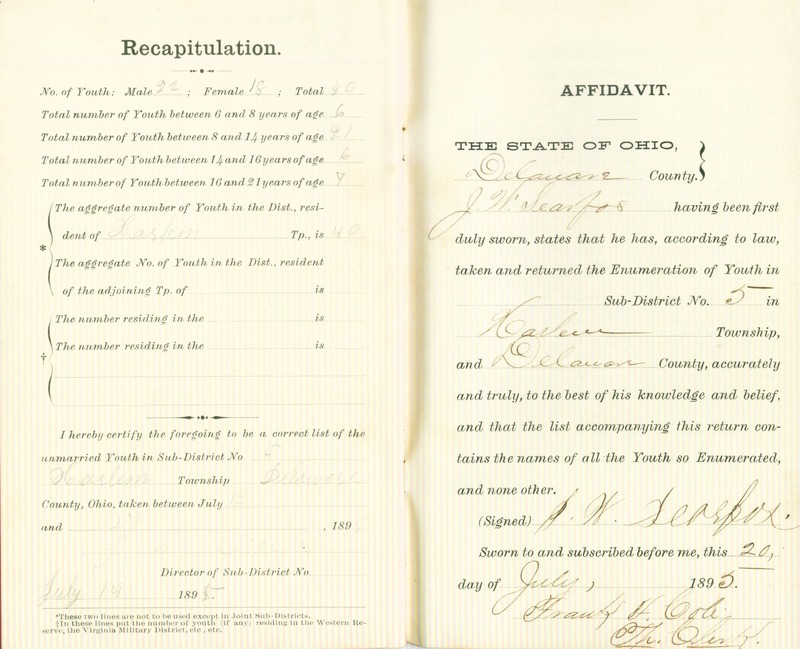 Recapitulation.
No. of Youth: Male 22; Female 18; Total 40
Total number of Youth between 6 and 8 years of age 6
Total number of Youth between 8 and 14 years of age 21
Total number of Youth between 14 and 16 years of age 6
Total number of Youth between 16 and 21 years of age 7
The aggregate number of Youth in the Dist., resi-
* dent of Harlem Tp., is 40
The aggregate No. of Youth in the Dist., resident
of the adjoining Tp. of is
The number residing in the is
† The number residing in the is
I hereby certify the foregoing to be a correct list of the
unmarried Youth in Sub-District No 5
Harlem Township Delaware
County, Ohio, taken between July
and , 189
Director of Sub-District No.
July 1895.
*These two lines are not to be used except in Joint Sub-Districts.
†In these lines put the number of youth (if any) residing in the Western Re-
serve, the Virginia Military District, etc., etc.
AFFIDAVIT.
THE STATE OF OHIO,
Delaware County.
J. W. Searfos having been first
duly sworn, states that he has, according to law,
taken and returned the Enumeration of Youth in
Sub-District No. 5 in
Harlem Township,
and Delawar County, accurately
and truly, to the best of his knowledge and belief,
and that the list accompanying this return con-
tains the names of all the Youth so Enumerated,
and none other.
(Signed) J. W. Searfos.
Sworn to and subscribed before me, this 20,
day of July, 1895.
Frank
Clerk.